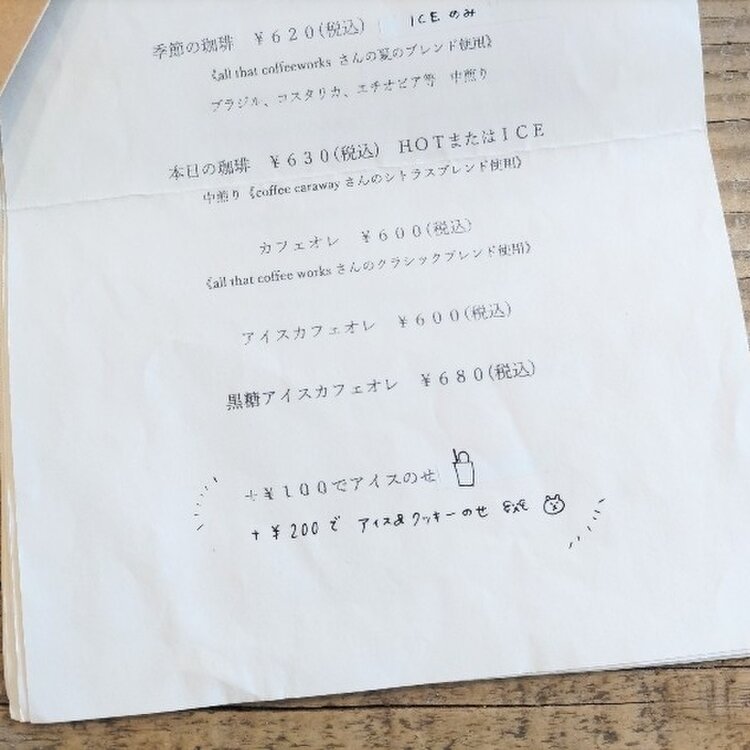 季節の珈琲 ¥620(税込) ICEのみ
《all that coffeeworks さんの夏のブレンド使用》
ブラジル、コスタリカ、エチオピア等 中煎り
本日の珈琲 ¥630(税込) HOTまたはICE
中煎り《coffee caraway さんのシトラスブレンド使用》
カフェオレ ¥600(税込)
《all that coffee works さんのクラシックブレンド使用》
アイスカフェオレ ¥600(税込)
黒糖アイスカフェオレ ¥680(税込)
+¥100でアイスのせ
+¥200で アイス&クッキーのせ